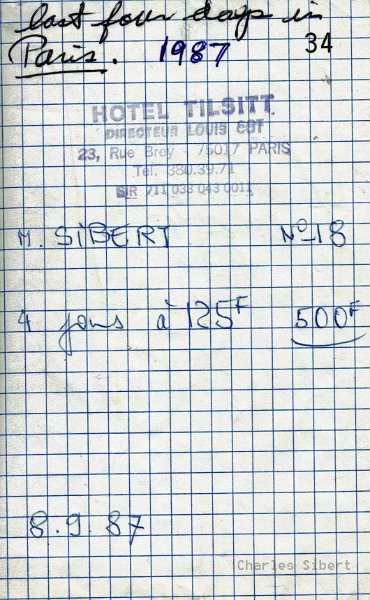 last four days in
Paris. 1987 34
HOTEL TILSITT
DIRECTEUR LOUIS GOT
23, Rue Brey 75017 PARIS
Tel. 380.39.71
SIR 711 033 043 0011
M. SIBERT N° 18
4 jours à 125F 500F
8.9.87
Charles Sibert